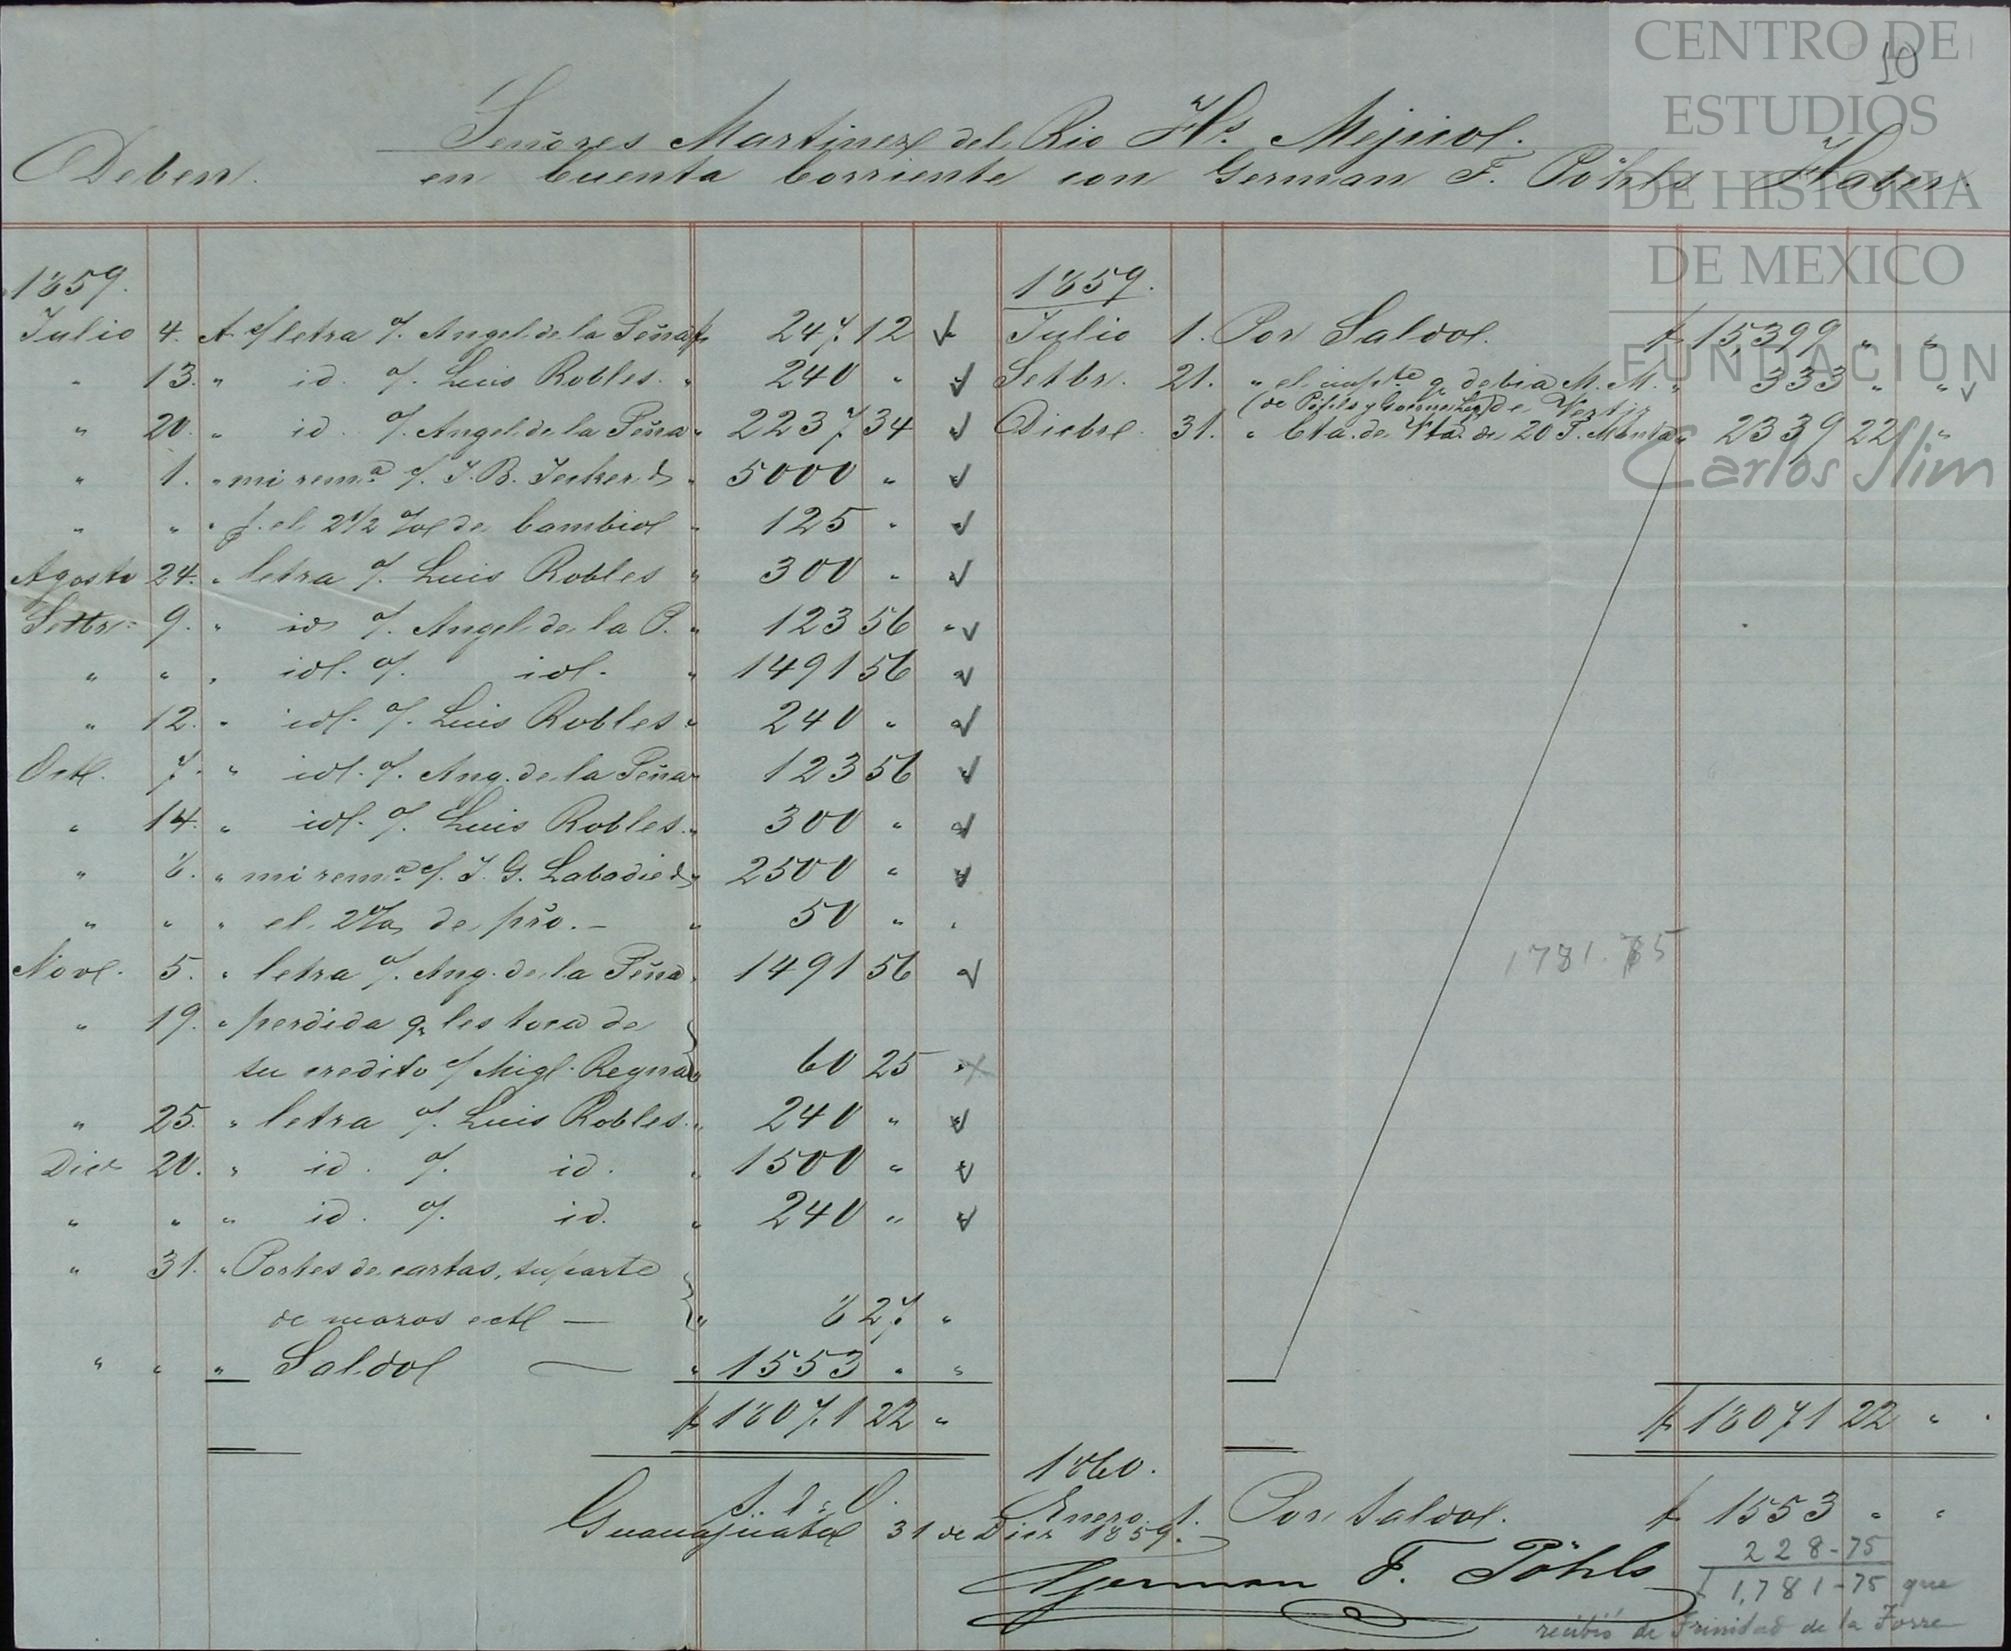 CENTRO DE
ESTUDIOS
DE HISTORIA
DE MEXICO
FUNDACION
Carlos Slim
10
Señores Martinez del Rio Hs. Mejico.
Deben. en Cuenta Corriente con German F. Pöhls Haber.
1859.
Julio 4. A c/ letra %. Angel de la Peña $ 247 12
" 13. " id. %. Luis Robles. " 240 "
" 20. " id. %. Angel de la Peña " 2237 34
" 1. " mi remª %. J. B. Jecker " 5000 "
" " " p. el 2 1/2 % de Cambio " 125 "
Agosto 24. " letra %. Luis Robles " 300 "
Setbr. 9. " id %. Angel de la P. " 123 56 "
" " " id. %. id. " 1491 56
" 12. " id. %. Luis Robles " 240 "
Oct. 7. " id. %. Ang. de la Peña " 123 56
" 14. " id. %. Luis Robles. " 300 "
" 8. " mi remª %. J. G. Labadie " 2500 "
" " " el 2% de pño. " 50 " "
Nov. 5. " letra %. Ang. de la Peña " 1491 56
" 19. " perdida q. les toca de
su credito %. Migl. Reyna " 60 25
" 25. " letra %. Luis Robles. " 240 "
Dice 20. " id. %. id. " 1500 "
" " " id. %. id. " 240 "
" 31. " Portes de cartas, su parte
de mozos ect " 8 27 "
" " " Saldo " 1553 " "
$ 18071 22 "
1859.
Julio 1. Por Saldo. $ 15,399 " "
Setbr. 21. " el impte q. debia M. M. " 333 " "
Dicbre. 31. " Cta. de Vta. de 20 T. Manta " 2339 22 "
1781.75
$ 18071 22 "
1860.
Enero 1. Por saldo. $ 1553 " "
S. E. u O.
Guanajuato 31 de Dice 1859.
German F. Pöhls
228-75
$ 1,781-75 que
recibió de Trinidad de la Torre